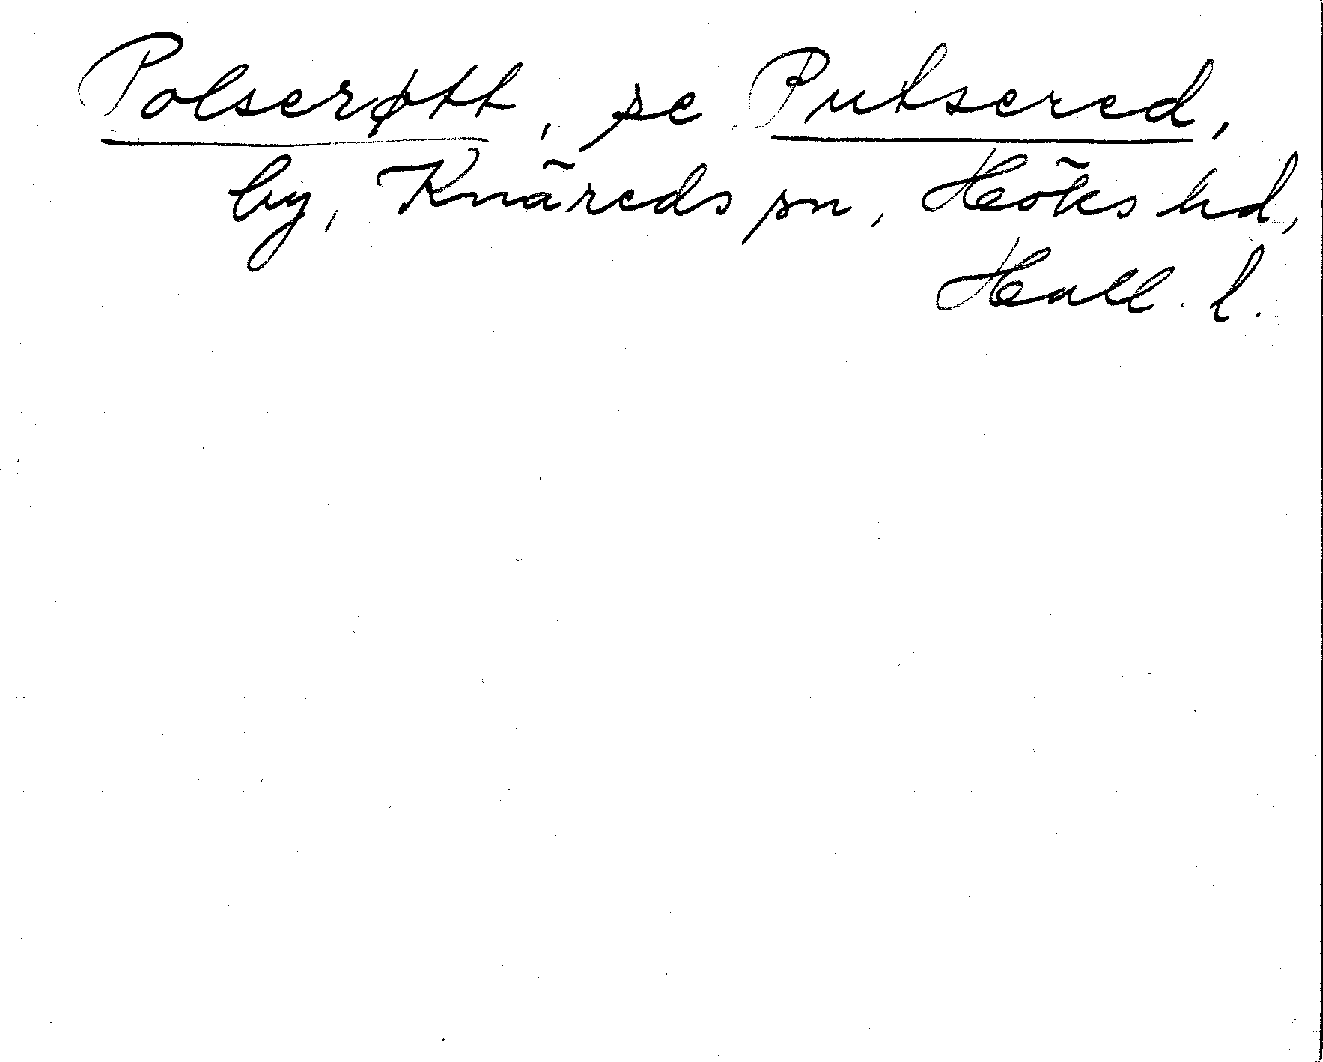 Polserøtt, se Putsered,
by, Knäreds sn, Höks hd,
Hall. l.